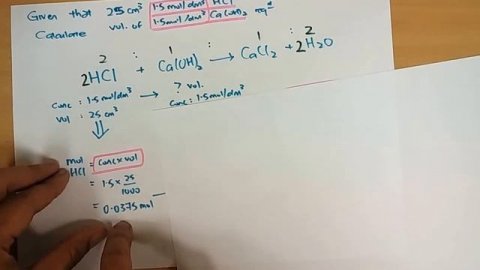 Given that 25cm³ 1.5mol/dm³ HCl
Calculate vol. of 1.5mol/dm³ Ca(OH)₂ reqᵈ
2 : 1 : 1 : 2
2HCl + Ca(OH)₂ → CaCl₂ + 2H₂O
Conc : 1.5mol/dm³ → ? vol.
vol : 25cm³ Conc : 1.5mol/dm³
mol HCl = conc x vol
= 1.5 x 25/1000
= 0.0375 mol